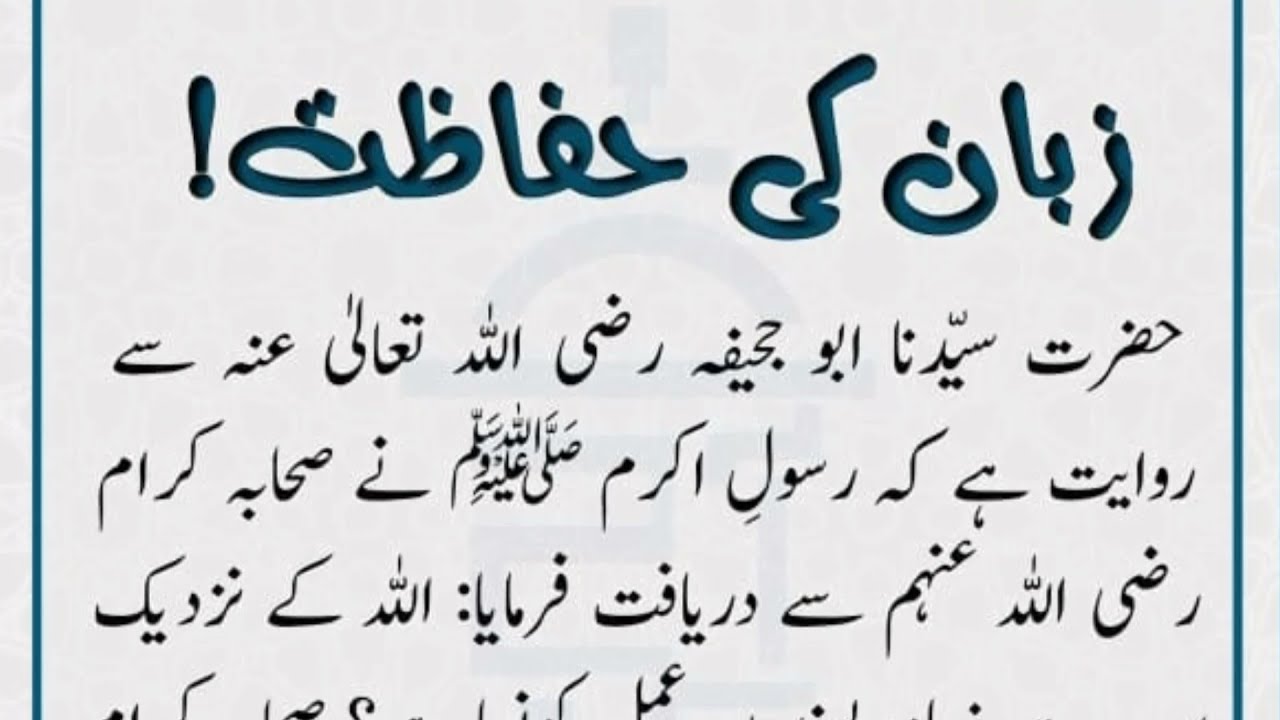 زبان کی حفاظت!
حضرت سیّدنا ابو جحیفہ رضی اللہ تعالیٰ عنہ سے
روایت ہے کہ رسولِ اکرم ﷺ نے صحابہ کرام
رضی اللہ عنہم سے دریافت فرمایا: اللہ کے نزدیک
عمل کونسا ہے؟ صحابہ کرام